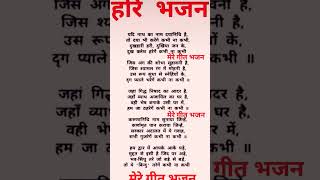 हरि भजन
यदि नाथ का नाम दयानिधि है,
तो दया भी करेंगे कभी ना कभी,
दुखहारी हरी, दुखिया जन के,
दुख क्लेश हरेंगे कभी ना कभी
मेरे गीत भजन
जिस अंग की शोभा सुहावनी है,
जिस श्यामल रंग में मोहनी है,
उस रूप सुधा से स्नेहियों के,
दृग प्याले भरेंगे कभी ना कभी ॥
जहां गिद्ध निषाद का आदर है,
जहाँ व्याध अजामिल का घर है,
वही भेष बनाके उसी घर में,
हम जा ठहरेंगे कभी ना कभी ॥
मेरे गीत भजन
करुणानिधि नाम सुनाया जिन्हें,
कर्णामृत पान कराया जिन्हें,
सरकार अदालत में ये गवाह,
सभी गुजरेंगे कभी ना कभी ॥
हम द्वार में आपके आके पड़े,
मुद्दत से इसी है जिद पर अड़े,
भव-सिंधु तरे जो बड़े से बड़े,
तो ये 'बिन्दु' तरेंगे कभी ना कभी
मेरे गीत भजन